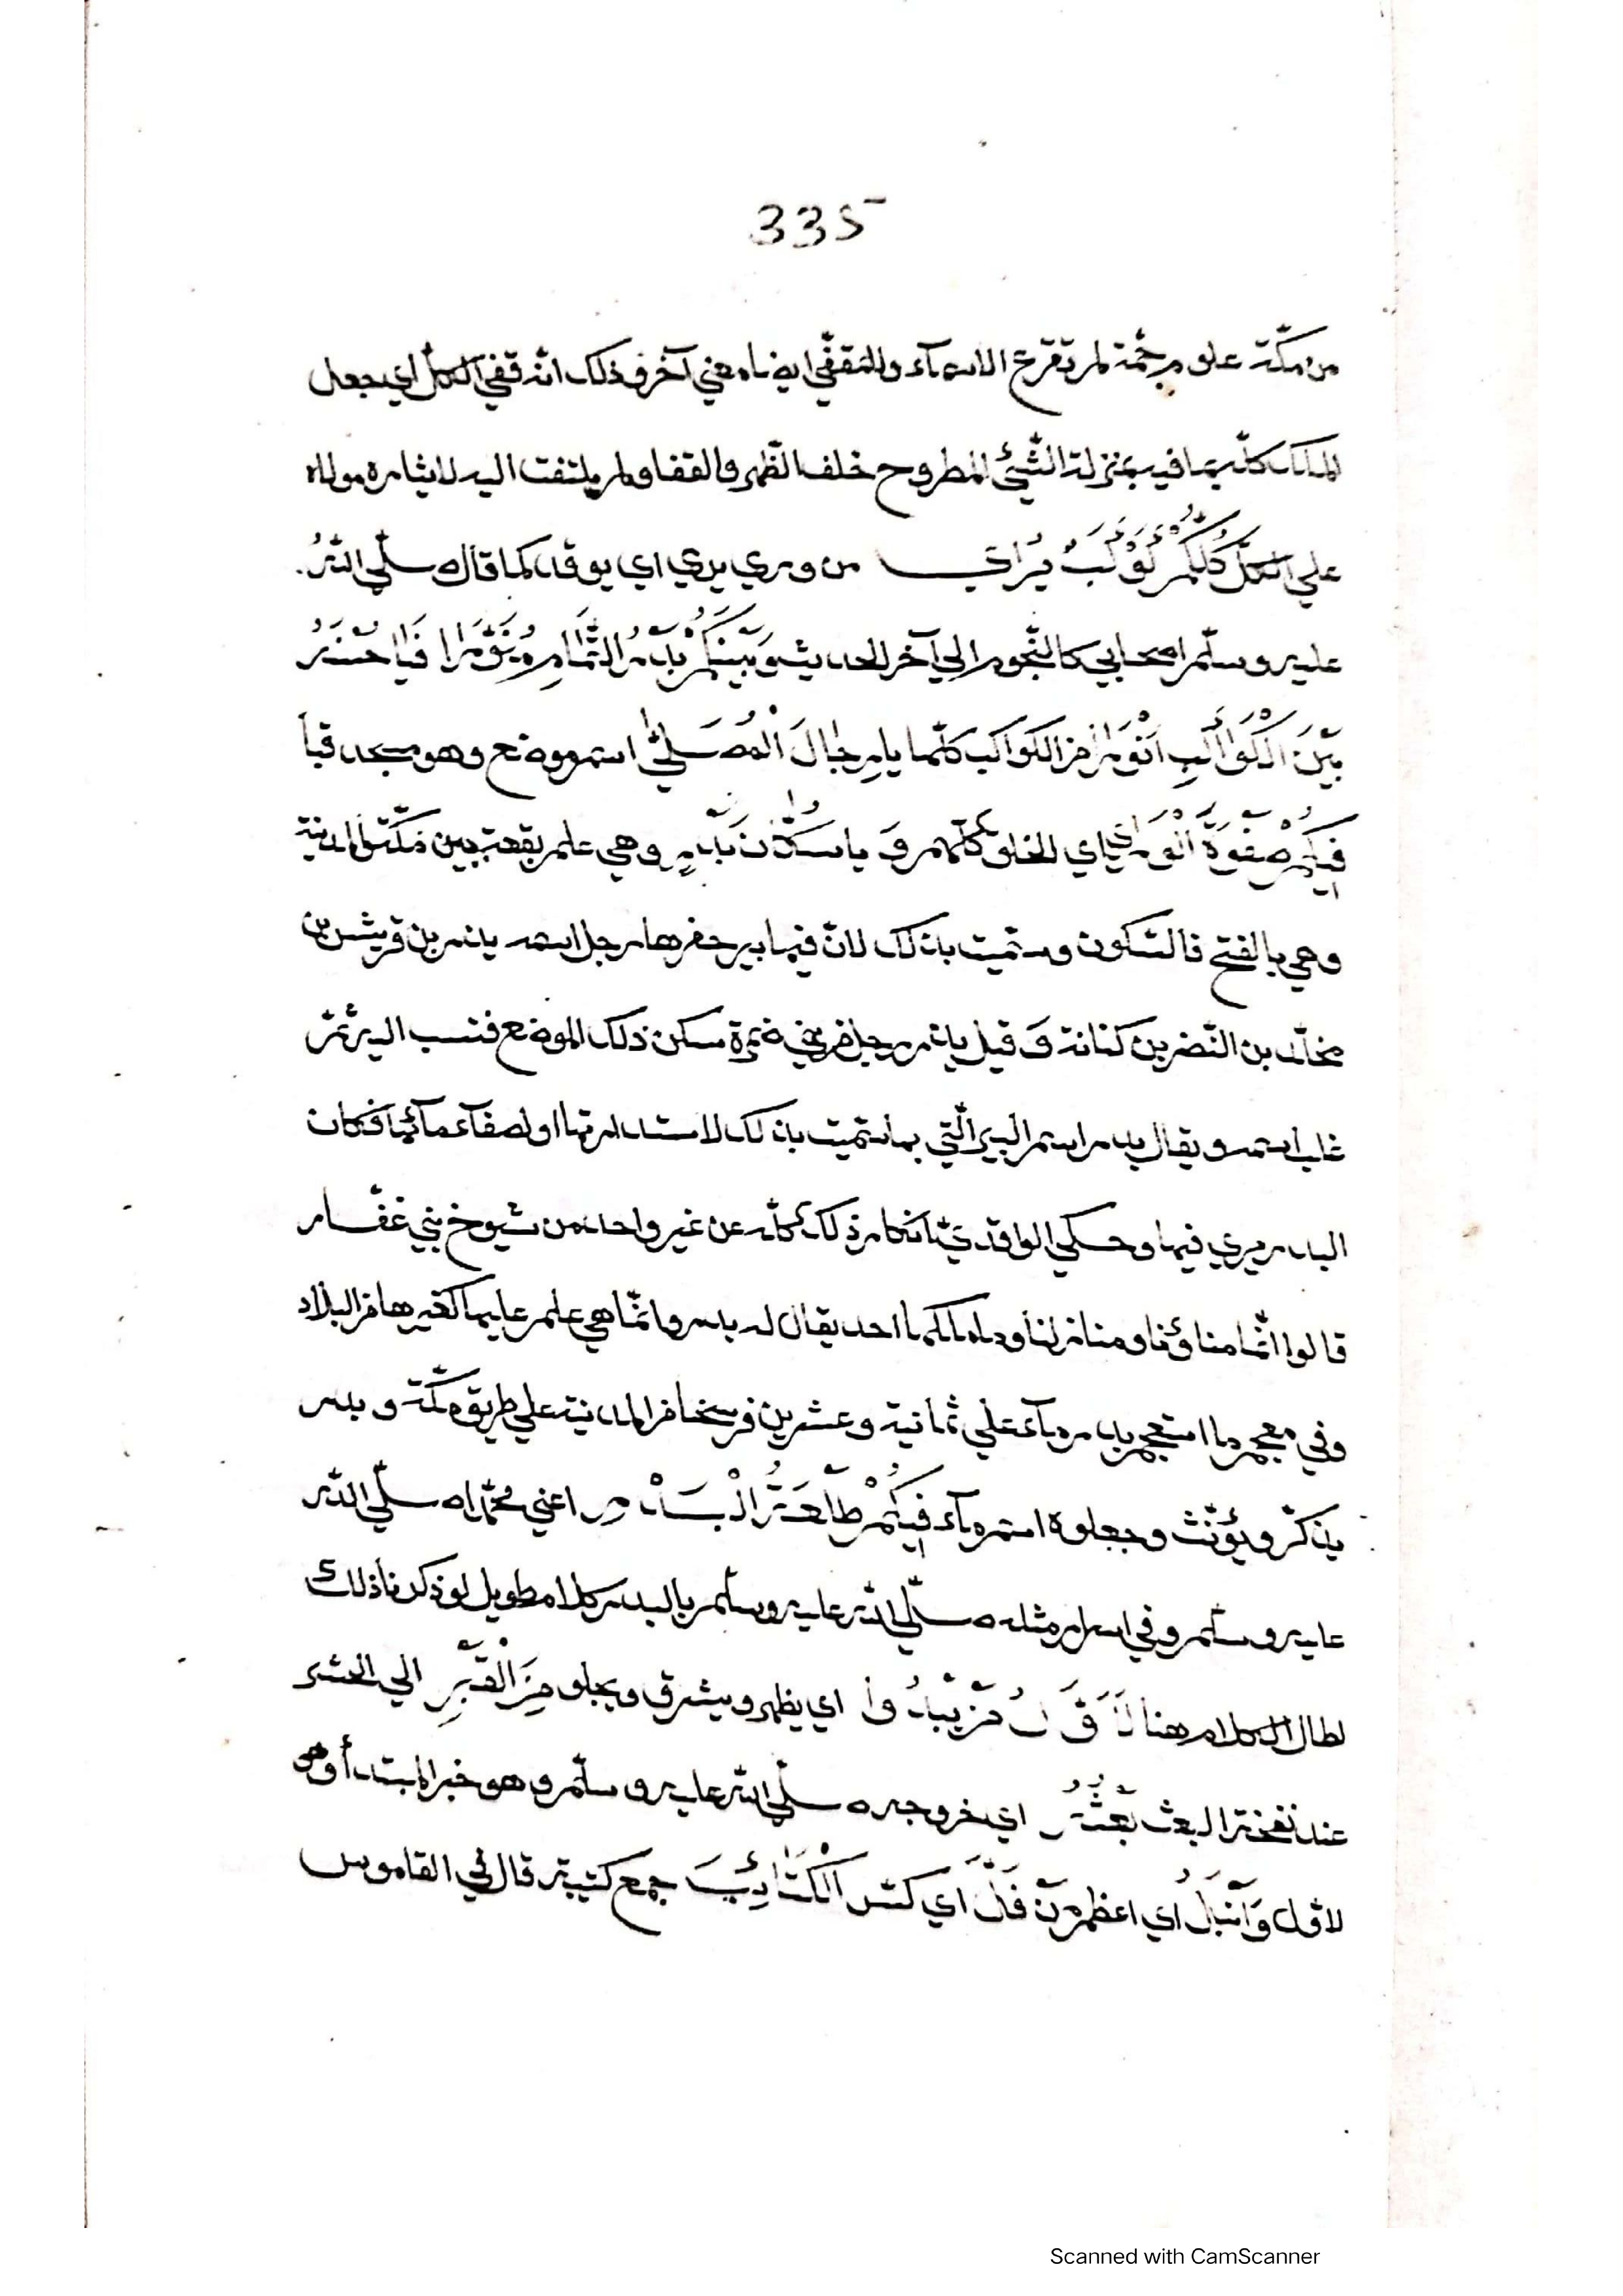 335
من مكّة علو مرحمة لم تقرع الاسمآء وللمقفّي ايضا معني آخر و ذلك انّه قفي الكلّ اي جعل
الملك كلّه بما فيه بمنزلة الشّيئ المطروح خلف الظّهر والقفا ولم يلتفت اليه لايثاره مولاه
علي الكلّ كُلُّكُمْ كَوْكَبٌ يُرَايَ من وري يري اي يوقد كما قال صلّي اللّهُ
عليه وسلّم اصحابي كالنّجوم الي آخر الحديث وَبَيْنَكُمْ بَدْرُ التَّمَامِ مُنَوَّرا فَيَا حُسْنَهُ
بَيْنَ الْكَوَاكِبِ اَنْوَرا من الكواكب كلّها يا رِجَالَ الْمُصَلَّيٰ اسم موضع وهو مسجد قبآ
فِيكُمْ صَفْوَةُ الْوَرَايٰ اي الخلق كلّهم وَ يا سُكَّانَ بَدْرٍ وهي علم بقعة بين مكّة والمدنية
وهي بالفتح فالسّكون وسمّيت بذلك لانّ فيها بير حفرها رجل اسمه بدر بن قريش بن
مخلّد بن النّضر بن كنانة وَ قيل بدر رجل من بني ضمرة سكن ذلك الموضع فنسب اليه ثمّ
غلب اسمه و يقال بدر اسم البير الّتي بها سمّيت بذلك لاستدارتها او لصفآء مآئها فكان
البدر يري فيها و حكي الواقديّ انكار ذلك كلّه عن غير واحد من شيوخ بني غفّار
قالوا انّما هي مأؤنا و منازلنا و ما ملكها احد يقال له بدر وانّما هي علم عليها كغيرها من البلاد
وفي معجم ما استعجم بدر مآء علي ثمانية و عشرين فرسخا من المدنية علي طريق مكّة و بدر
يذكّر و يؤنّث و جعلوه اسم مآء فِيكُمْ طَلْعَةُ الْبَدْرِ اعني محمّدا صلّي اللّه
عليه و سلّم و في اسرار مثله صلّي اللّه عليه وسلّم بالبدر كلام طويل لو ذكرنا ذلك
لطال الكلام هنا لَاَوَّلُ مَنْ يَبْدُو اي يظهر و يشرق و يجلو مِنَ الْقَبْرِ الي الحشر
عند نفخة البعث بَعْثُهُ اي خروجه صلّي اللّه عليه و سلّم و هو خبر المبتدأ و هو
لاوّل وَاَنْبَلُ اي اعظم مَنْ فَلَّ اي كسر الْكَتَائِبَ جمع كتيبة قال في القاموس
Scanned with CamScanner